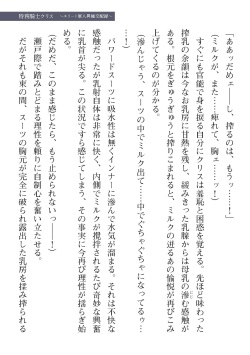 特務騎士クリス ～エリート軍人異種交配録～
「ああっだめェ――し、搾るのは、もうッ……！」
（ミルクが、また……溢れて、胸ェ……ッ！）
すぐにも官能で身を捩る自分にクリスは羞恥と困惑を覚える。先ほど味わった
搾乳の余韻は今なお乳房に甘熱を残し、緩みきった乳腺からは母乳の滲む感触が
ある。根元をぎゅうぎゅうと搾りこまれると、ミルクの迸るあの愉悦が再びこみ
上げてくるのが分かる。
（滲んじゃう、スーツの中でミルク出て……中でぐちゃぐちゃになってるゥ……
……！）
パワードスーツに吸水性は無くインナーに滲んで水気が溜まる。それは不快な
感触だったが乳射自体は非常に快く、内側でミルクが攪拌されるたび奇妙な興奮
に乳首が尖る。この状況ですら感じてしまう、その事実に今再び理性が揺らぎ始
める。
（だめだ、このまま感じたら、だめなのっ――！）
瀬戸際で踏みとどまる理性を頼りに自制心を奮い立たせる。
だがそれも束の間、スーツの胸元が完全に破られ露出した乳房を揉み搾られる